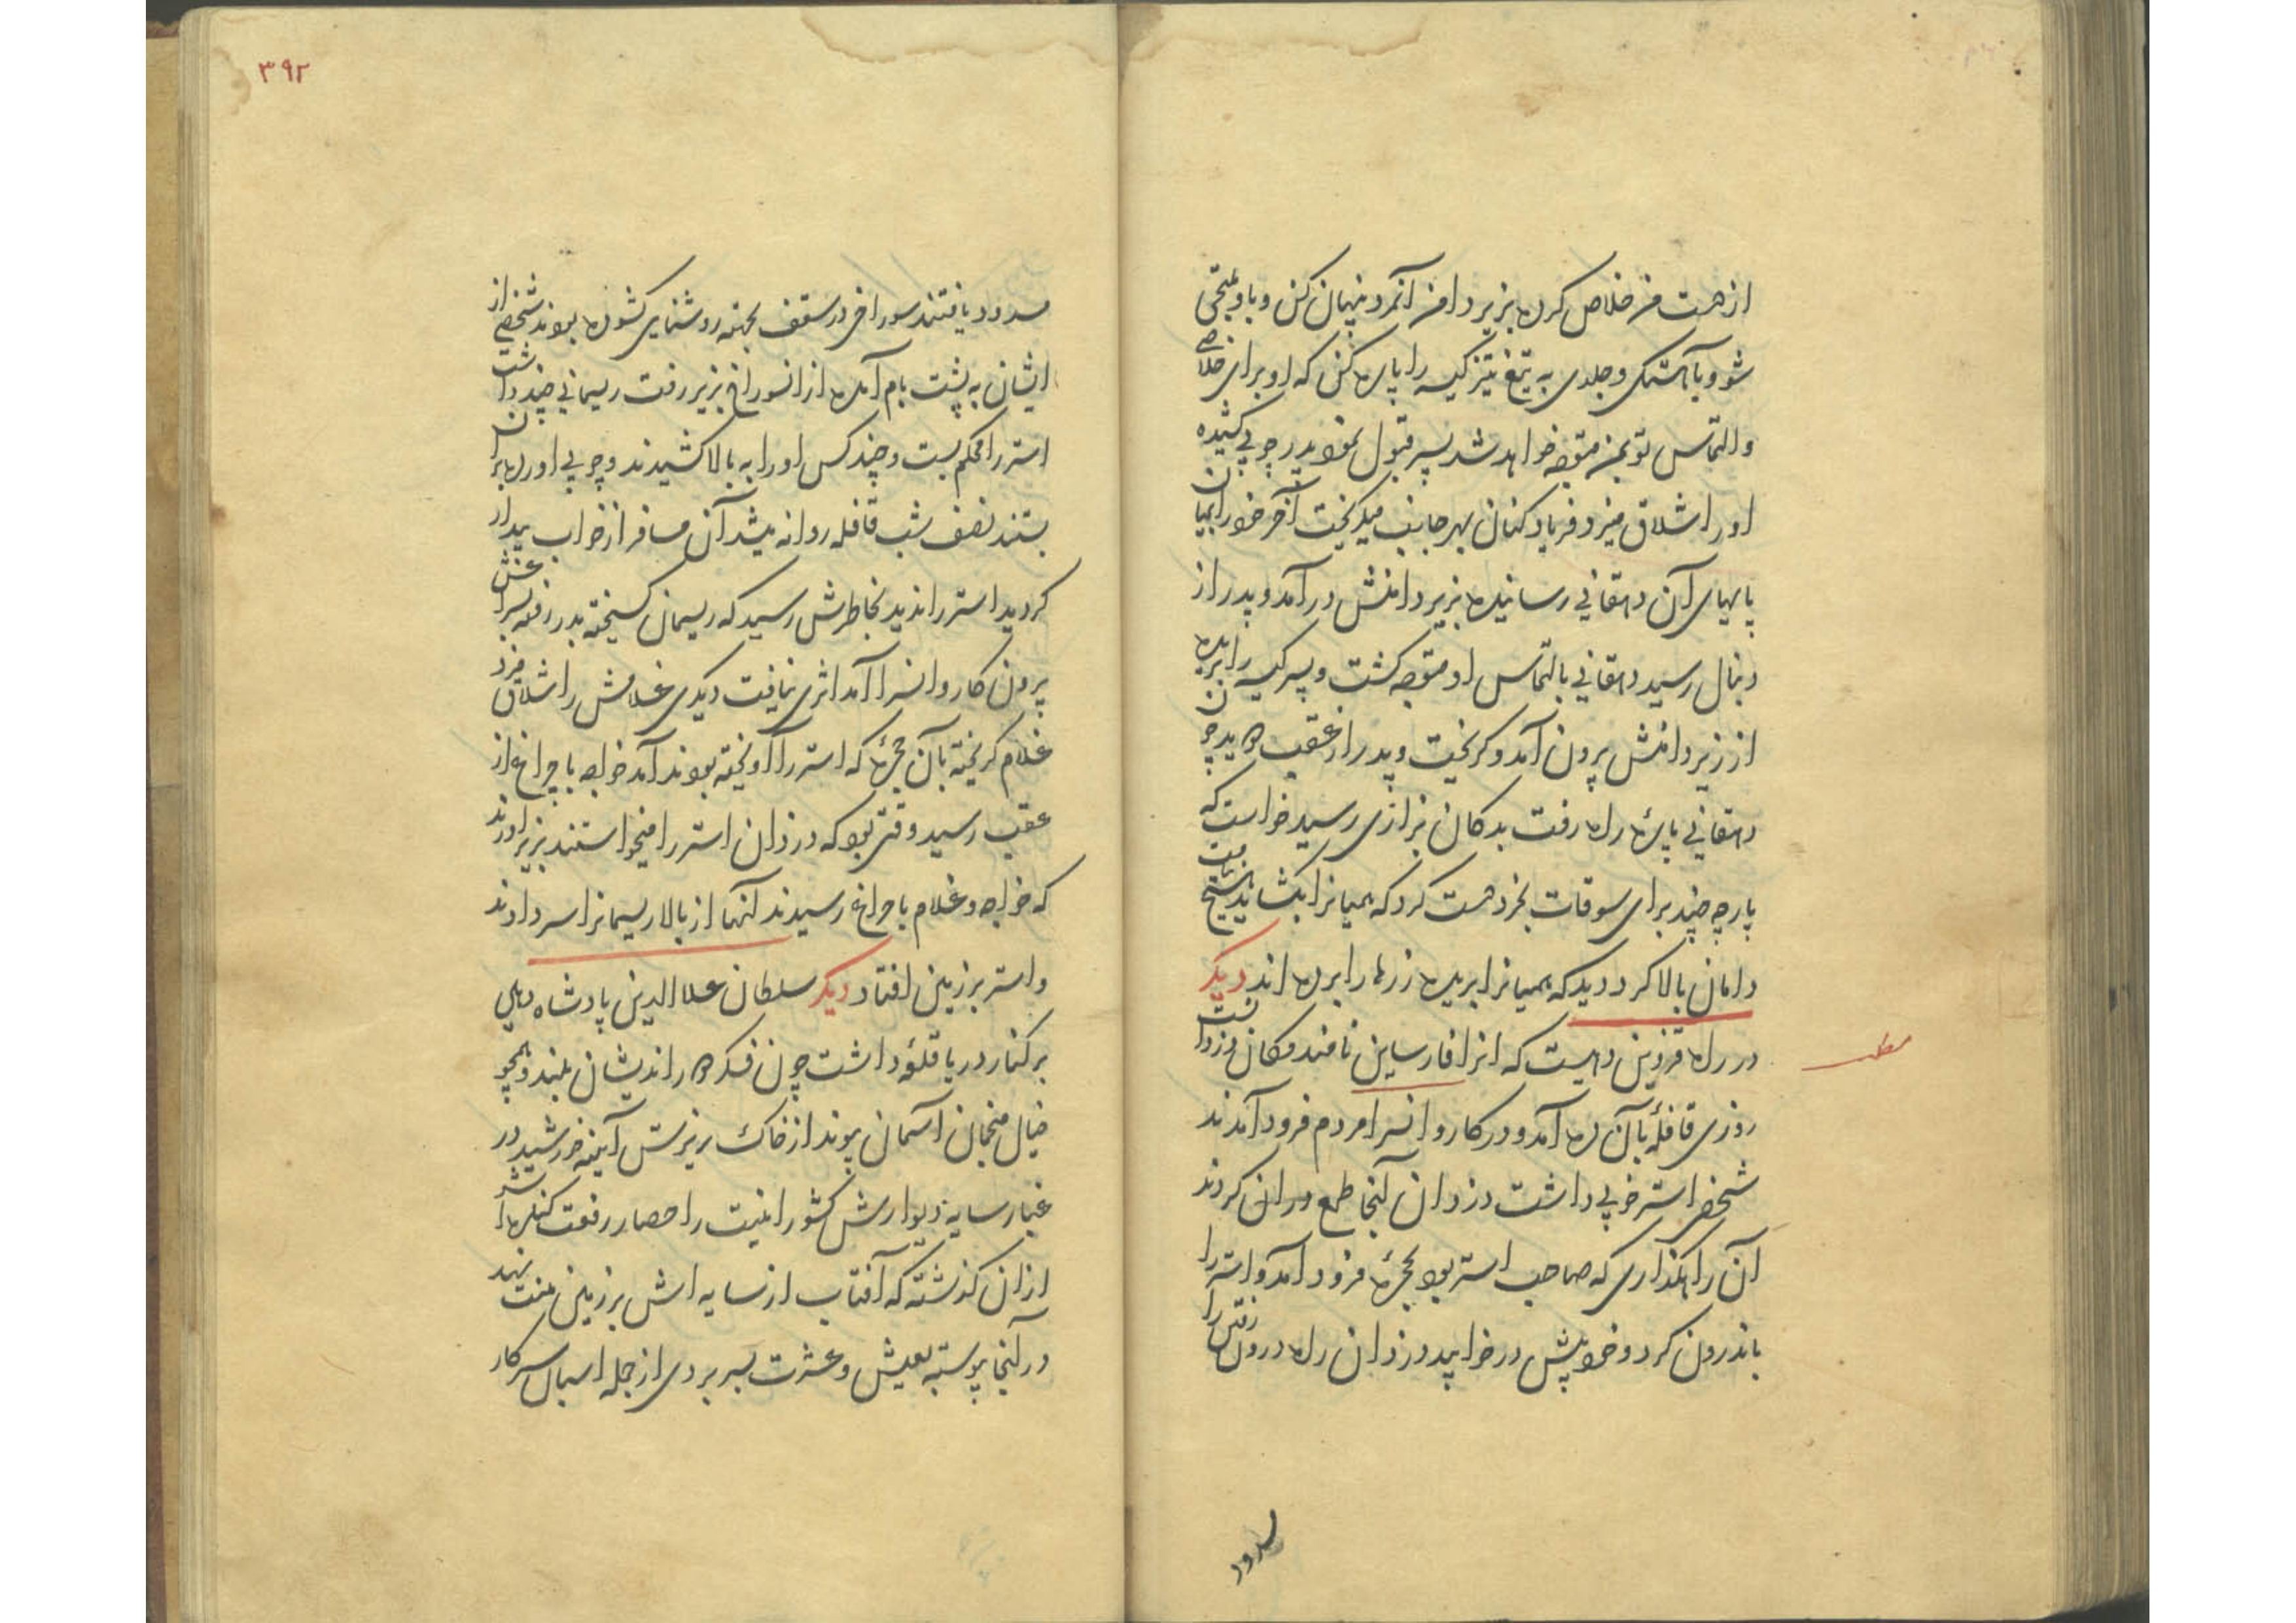 از دست من خلاص کرده بزیر دامن آنمرد پنهان کن و باو ملتجی
شو و بآهستگی و جلدی به تیغ تیز کیسه را پاره کن که او برای خلاصی
والتماس تو بمن متوجه خواهد شد پسر قبول نمود پدر چوبی کشیده
او را شلاق میزد و فریاد کنان بهر جانب میگریخت آخر خود را بمیان
پایهای آن دهقانی رسانیده بزیر دامنش درآمد و پدر از
دنبال رسید دهقانی بالتماس او متوجه گشت و پسر کیسه را بریده
از زیر دامنش بیرون آمد و گریخت و پدر از عقب دوید چون
دهقانی پاره راه رفت بدکان بزازی رسید خواست که
پارچه چند برای سوقات بخرد دست کرد که همیانرا بکشاید نیافت
دامان بالا کرد دید که همیانرا بریده زرها را برده اند دیگر
در راه قزوین دهیست که انرا فارسابن نامند مکان دزدانست
روزی قافلهٔ بآن ده آمد و در کاروانسرا مردم فرود آمدند
شخصی استر خوبی داشت دزدان آنجا طمع در ان کردند
آن راهگذاری که صاحب استر بود بحجرهٔ فرود آمد و استر را
باندرون کرد و خود پیش در خوابید دزدان راه درون رفتن را
مطلب
مسدود
۳۹۲
مسدود یافتند سوراخی در سقف بجهته روشنایی کشوده بودند شخصی از
ایشان به پشت بام آمده از انسوراخ بزیر رفت ریسمانی چند داشت
استر را محکم بست و چند کس او را به بالا کشیدند و چوبی اورده بران
بستند نصف شب قافله روانه میشد آن مسافر از خواب بیدار
گردید استر را ندید بخاطرش رسید که ریسمان گسیخته بدر رفته بسراغش
بیرون کاروانسرا آمد اثری نیافت دیگری غلامش را شلاق میزد
غلام گریخته بآن حجرهٔ که استر را آویخته بودند آمد خواجه با چراغ از
عقب رسید وقتی بود که دزدان استر را میخواستند بزیر اورند
که خواجه و غلام با چراغ رسیدند آنها از بالا ریسمانرا سر دادند
و استر بر زمین افتاد دیگر سلطان علاالدین پادشاه دهلی
بر کنار دریا قلعهٔ داشت چون فکر دوراندیشان بلند و همچو
خیال منجمان آسمان پیوند از خاک ریزش آینه خورشید در
غبار سایه دیوارش کشور امنیت را حصار رفعت کنگره اش
از ان گذشته که آفتاب از سایه اش بر زمین منت نهد
در آنجا پیوسته بعیش و عشرت بسر بردی از جمله اسبان سرکار